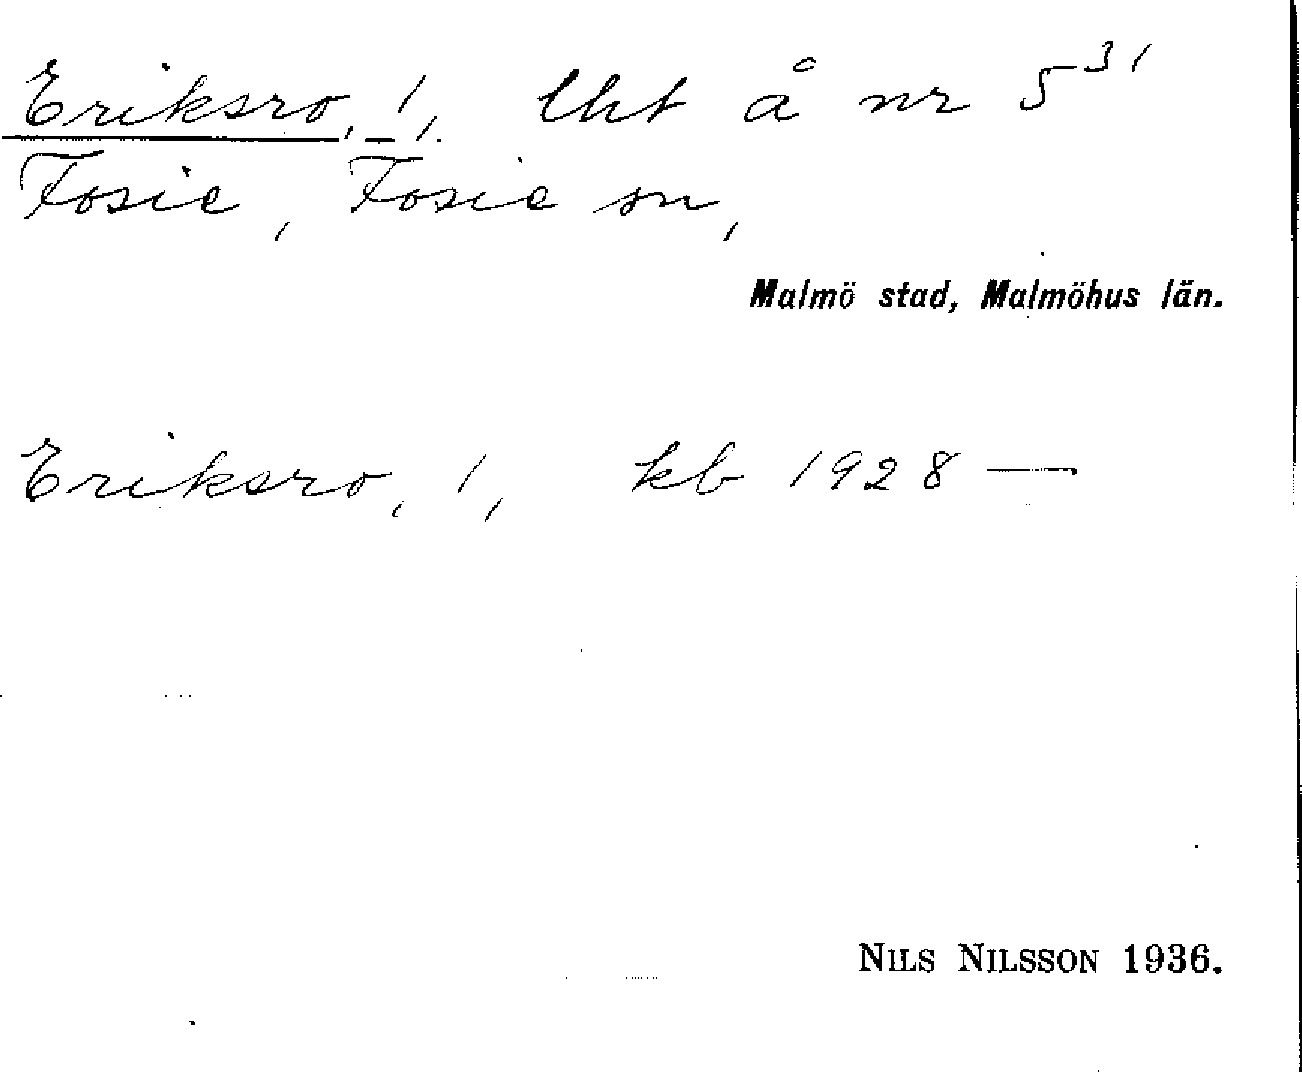 Eriksro, 1, lht å nr 5³¹
Fosie, Fosie sn,
Malmö stad, Malmöhus län.
Eriksro, 1, kb 1928 —
NILS NILSSON 1936.